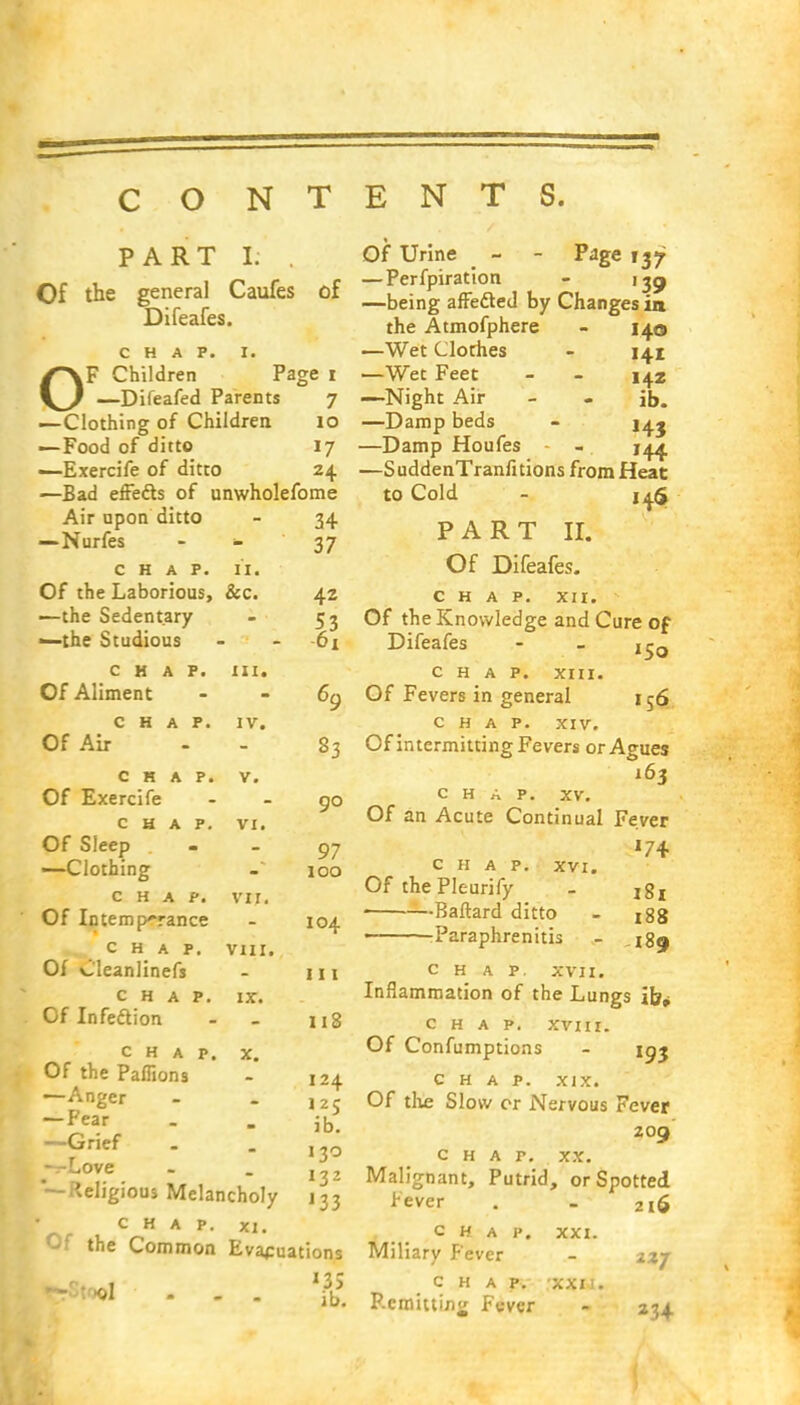 CONTENTS.
PART I.
Of the general Caufes of
Difeafes.
CHAP. I.
OF Children Page 1
—Difeafed Parents 7
—Clothing of Children 10
—Food of ditto 17
—Exercife of ditto 24
—Bad effects of unwholefome
Air upon ditto - 34
—Nurfes - - 37
CHAP. II.
Of the Laborious, &c. 42
—the Sedentary - 53
—the Studious - - 61
CHAP. III.
Of Aliment - - 69
CHAP. IV.
Of Air - - 83
CHAP. V.
Of Exercife - - 90
CHAP. VI.
Of Sleep - - 97
—Clothing - 100
CHAP. VII.
Of Intemperance - 104
CHAP. VIII.
Of Cleanlinefs - 111
CHAP. IX.
Of Infection - - 118
CHAP. X.
Of the Paffions - 124
—Anger - - 125
—Fear - - ib.
—Grief - - 130
—Love - - 132
—Religious Melancholy 133
CHAP. XI.
Of the Common Evacuations
135
—Stool - - - ib.
Of Urine - - Page 137
—Perfpiration - 139
—being affected by Changes in
the Atmofphere - 140
—Wet Clothes - 141
—Wet Feet - - 142
—Night Air - - ib.
—Damp beds - 143
—Damp Houfes - - 144
—Sudden Tranfitions from Heat
to Cold - 146
PART II.
Of Difeafes.
CHAP. XII.
Of the Knowledge and Cure of
Difeafes - - 150
CHAP. XIII.
Of Fevers in general 156
CHAP. XIV.
Of intermitting Fevers or Agues
163
CHAP. XV.
Of an Acute Continual Fever
174
CHAP. XVI.
Of the Pleurify - 181
———Baftard ditto - 188
———Paraphrenitis - 189
CHAP. XVII.
Inflammation of the Lungs ib.
CHAP. XVIII.
Of Confumptions - 193
CHAP. XIX.
Of the Slow or Nervous Fever
209
CHAP. XX.
Malignant, Putrid, or Spotted
Fever . - 216
CHAP. XXI.
Miliary Fever - 227
CHAP. XXII.
Remitting Fever - 234